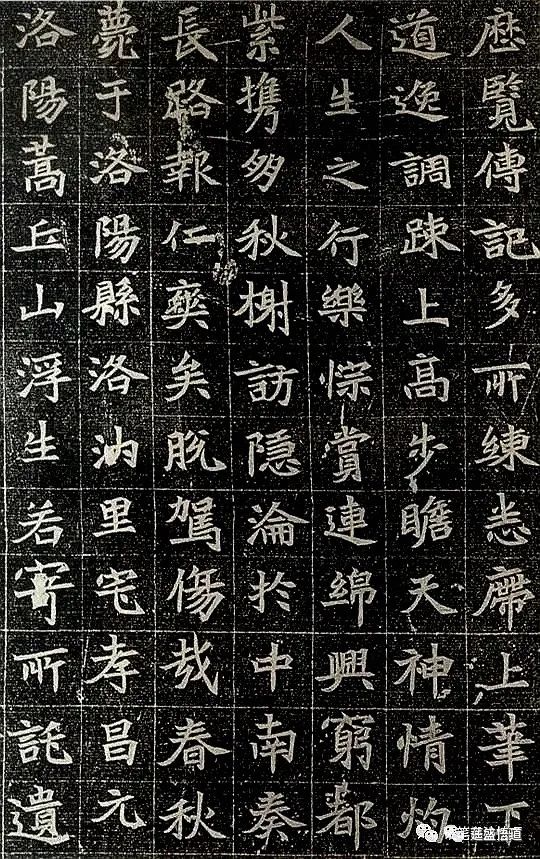 厯覽傳記多所練悉席上華下
道逸調踈上高步瞻天神情灼
人生之行樂悰賞連綿興窮都
紫攜多秋榭訪隱淪於中南奏
長路報仁爽矣脫駕傷哉春秋
薨于洛陽縣洛汭里宅孝昌元
洛陽蒿丘山浮生若寄所託遺